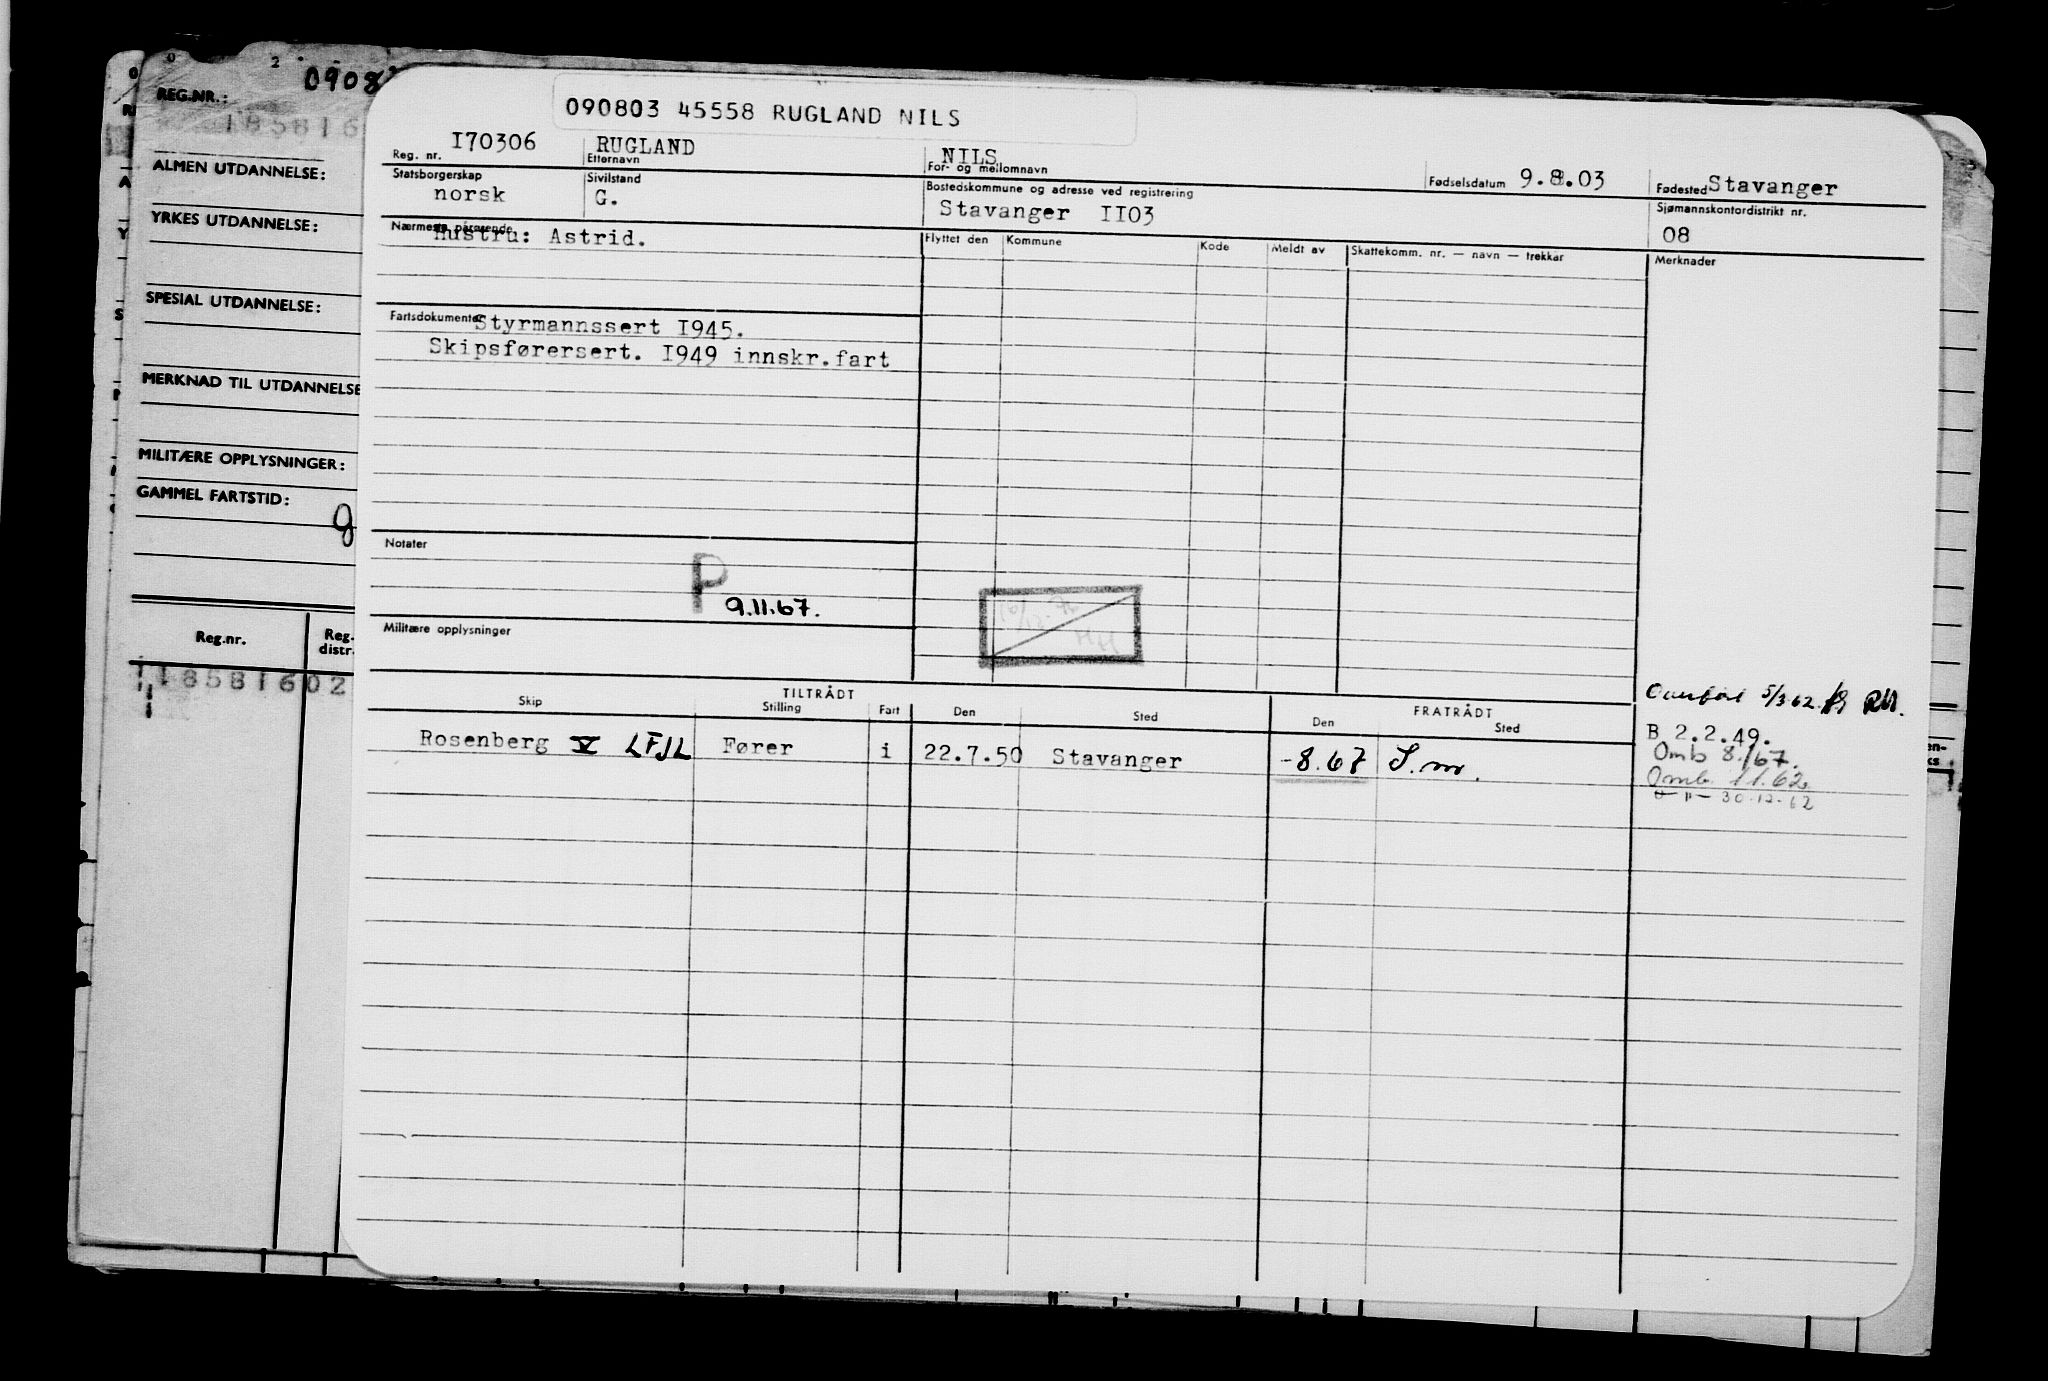 0908
REG.NR.:
ALMEN UTDANNELSE:
YRKES UTDANNELSE:
SPESIAL UTDANNELSE:
MERKNAD TIL UTDANNELSE
MILITÆRE OPPLYSNINGER:
GAMMEL FARTSTID:
g
Reg.nr.
Reg.-
distr.
18581602
090803 45558 RUGLAND NILS
Reg. nr. I70306
RUGLAND
Etternavn
NILS
For- og mellomnavn
Fødselsdatum 9.8.03
Fødested Stavanger
Statsborgerskap
norsk
Sivilstand
G.
Bostedskommune og adresse ved registrering
Stavanger II03
Sjømannskontordistrikt nr.
08
Nærmeste pårørende
Hustru: Astrid.
Flyttet den
Kommune
Kode
Meldt av
Skattekomm. nr. — navn — trekkar
Merknader
Fartsdokumenter
Styrmannssert I945.
Skipsførersert. I949 innskr.fart
Notater
P
9.11.67.
Militære opplysninger
Overført 5/3.62
TILTRÅDT
FRATRÅDT
Skip
Stilling
Fart
Den
Sted
Den
Sted
Rosenberg V LFJL
Fører
i
22.7.50
Stavanger
-8.67
S.m.
B 2.2.49.
Omb 8./67.
Omb. 11.62
— " — 30.12.62